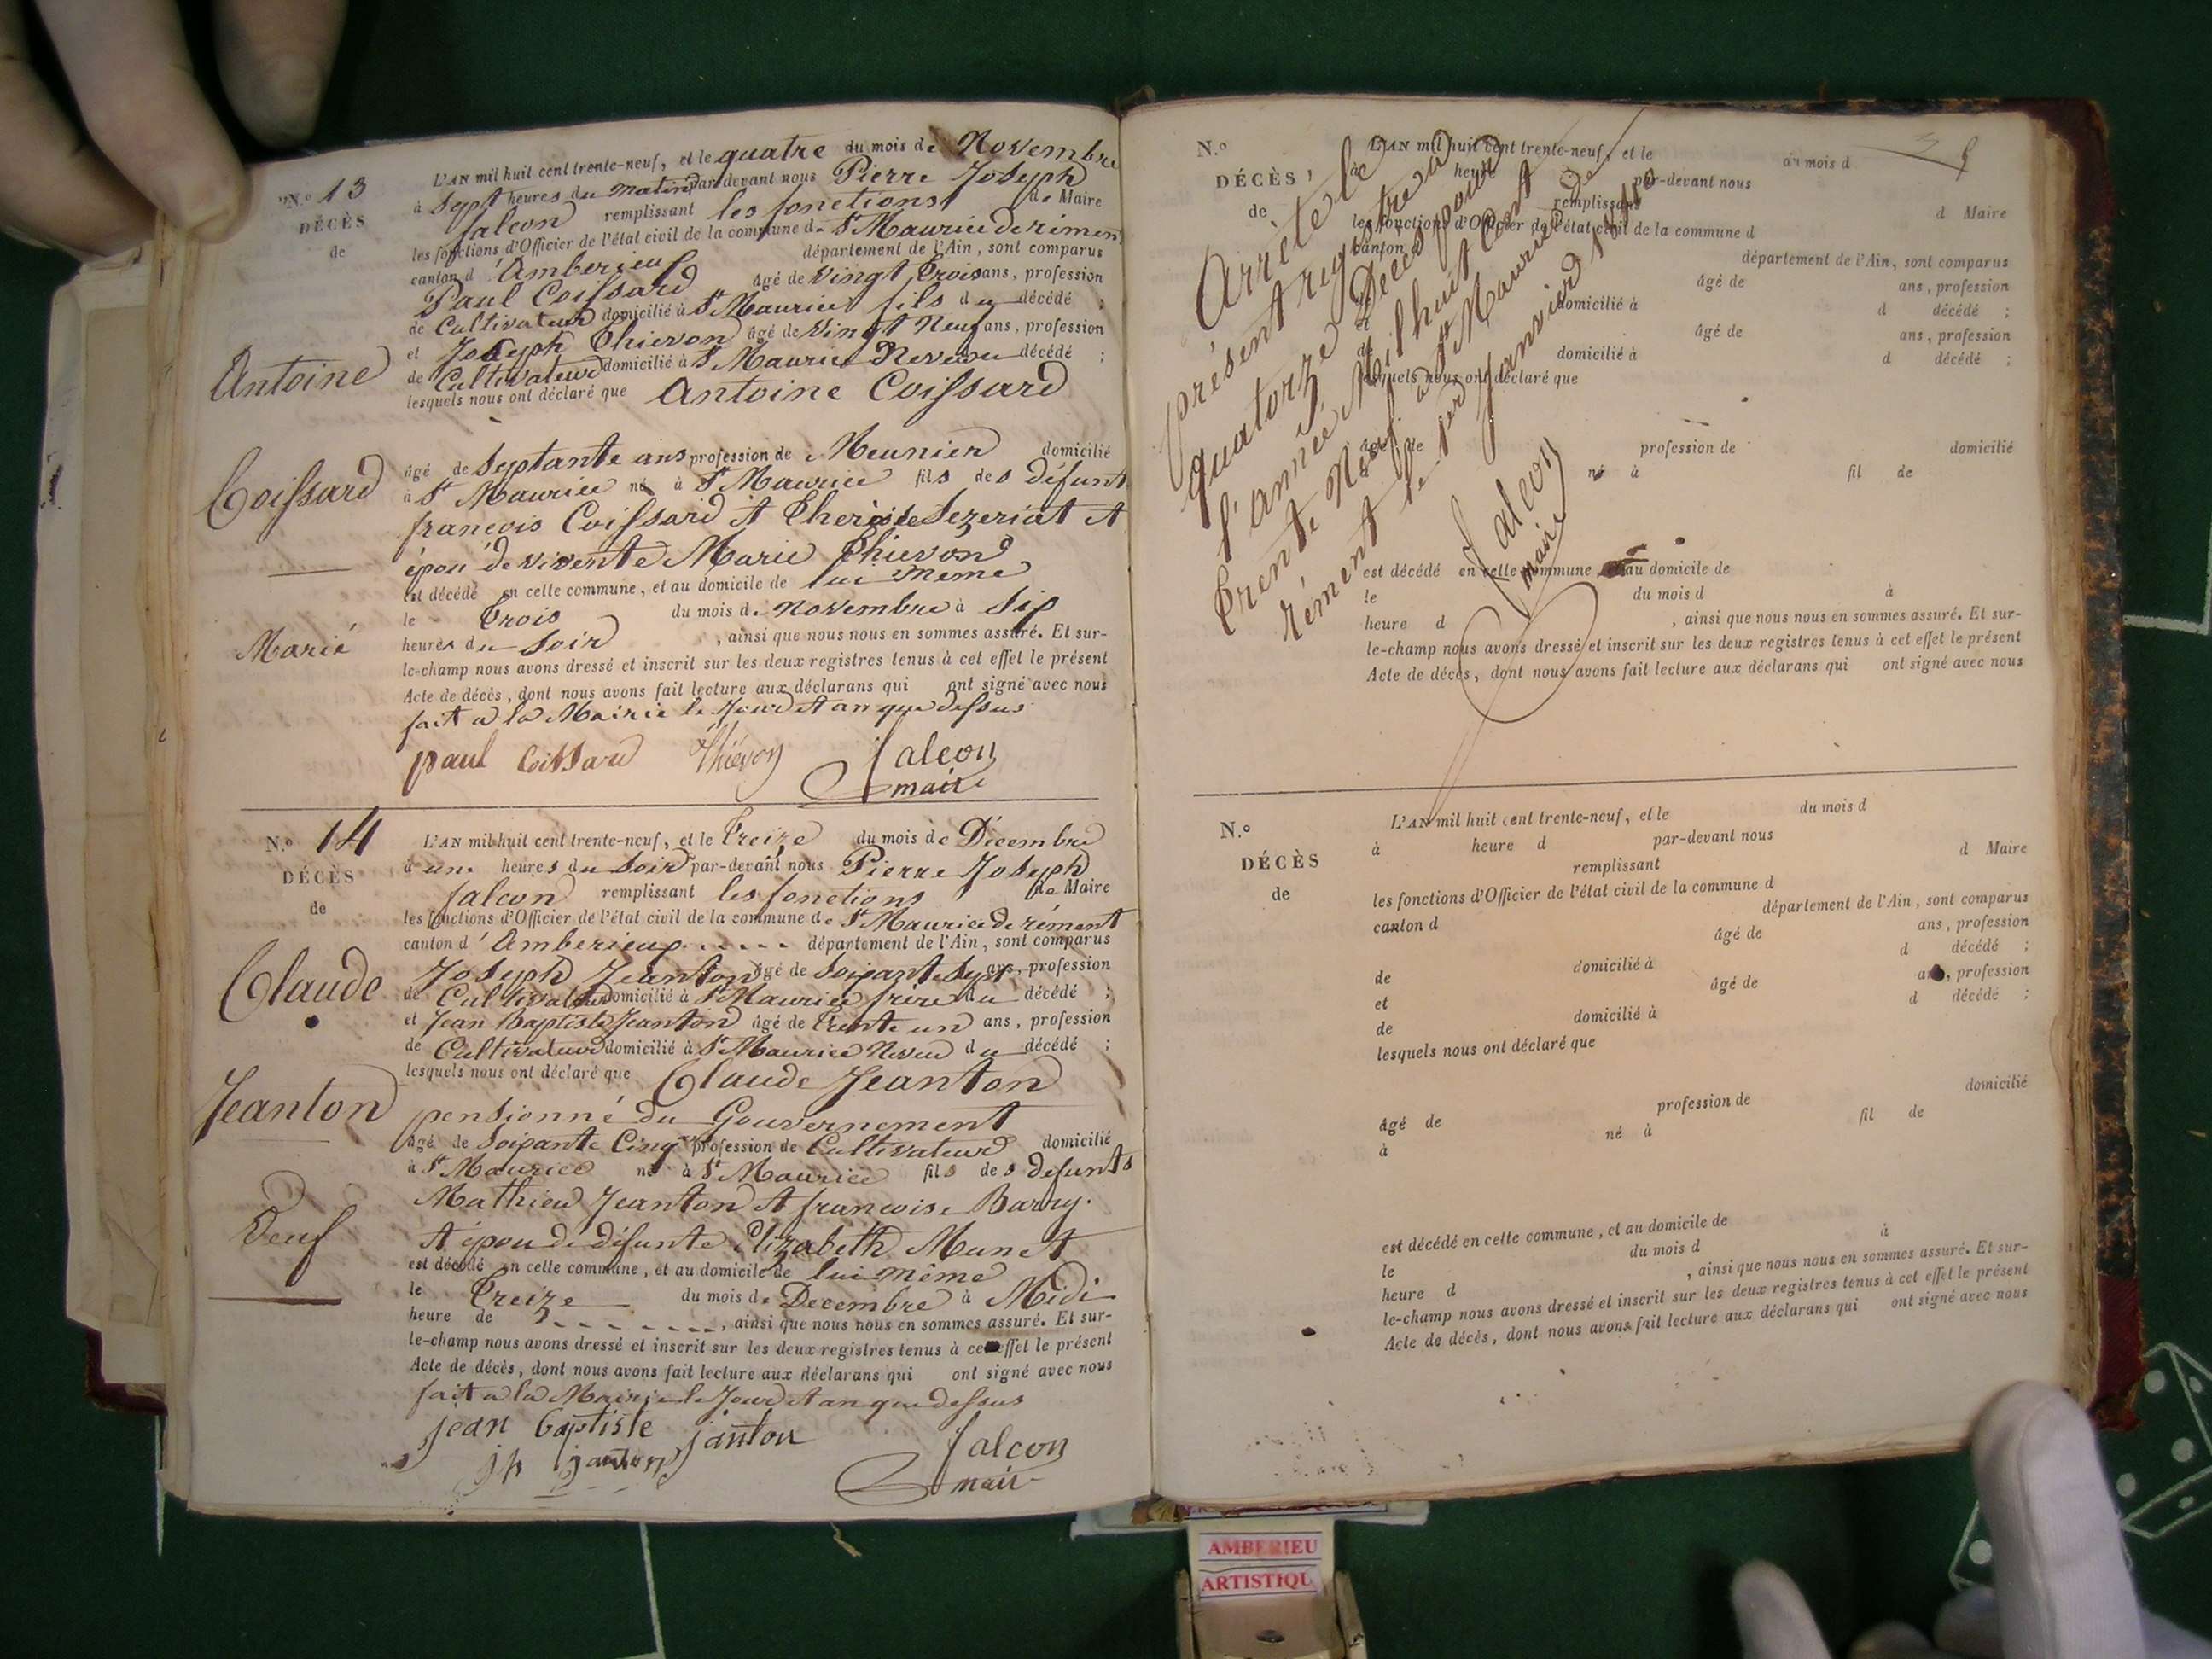 N.º 13
DÉCÈS
de
Antoine
Coissard
Marié
L'AN mil huit cent trente-neuf, et le quatre du mois de Novembre
à Sept heures du matin par-devant nous Pierre Joseph
falcon remplissant les fonctions de Maire
les fonctions d'Officier de l'état civil de la commune de St Maurice de rémen
canton d'Amberieux département de l'Ain, sont comparus
Paul Coissard âgé de vingt trois ans, profession
de Cultivateur domicilié à St Maurice fils du décédé ;
et Joseph Thievon âgé de vingt Neuf ans, profession
de Cultivateur domicilié à St Maurice Neveu décédé ;
lesquels nous ont déclaré que Antoine Coissard
âgé de Septante ans profession de Meunier domicilié
à St Maurice né à St Maurice fils des défunt
francois Coissard et Therèse Sezeriat et
épou de vivente Marie Thievon
est décédé en cette commune, et au domicile de lui meme
le Trois du mois de novembre à Six
heures du Soir , ainsi que nous nous en sommes assuré. Et sur-
le-champ nous avons dressé et inscrit sur les deux registres tenus à cet effet le présent
Acte de décès, dont nous avons fait lecture aux déclarans qui ont signé avec nous
fait a la Mairie le Jour et an que dessus
paul Coissard Thiévon falcon
maire
N.º 14
DÉCÈS
de
Claude
Jeanton
Veuf
L'AN mil huit cent trente-neuf, et le Treize du mois de Décembre
à une heures du Soir par-devant nous Pierre Joseph
falcon remplissant les fonctions de Maire
les fonctions d'Officier de l'état civil de la commune de St Maurice de rément
canton d'Amberieux département de l'Ain, sont comparus
Joseph Jeanton âgé de Soixante Sept ans, profession
de Cultivateur domicilié à St Maurice frère du décédé ;
et Jean Baptiste Jeanton âgé de Trente un ans, profession
de Cultivateur domicilié à St Maurice Neveu du décédé ;
lesquels nous ont déclaré que Claude Jeanton
pensionné du Gouvernement
âgé de Soixante Cinq profession de Cultivateur domicilié
à St Maurice né à St Maurice fils des defunts
Mathieu Jeanton et francoise Barry.
et épou de défunte Elizabeth Munet
est décédé en cette commune, et au domicile de lui même
le Treize du mois de Decembre à Midi
heure de , ainsi que nous nous en sommes assuré. Et sur-
le-champ nous avons dressé et inscrit sur les deux registres tenus à cet effet le présent
Acte de décès, dont nous avons fait lecture aux déclarans qui ont signé avec nous
fait a la Mairie le Jour et an que dessus
jean baptiste janton
jh janton falcon
maire
N.º
DÉCÈS
de
L'AN mil huit cent trente-neuf, et le du mois d
à heure d par-devant nous
remplissant d Maire
les fonctions d'Officier de l'état civil de la commune d
canton d département de l'Ain, sont comparus
âgé de ans, profession
de domicilié à d décédé ;
et âgé de ans, profession
de domicilié à d décédé ;
lesquels nous ont déclaré que
âgé de profession de domicilié
à né à fil de
est décédé en cette commune, et au domicile de
le du mois d à
heure d , ainsi que nous nous en sommes assuré. Et sur-
le-champ nous avons dressé et inscrit sur les deux registres tenus à cet effet le présent
Acte de décès, dont nous avons fait lecture aux déclarans qui ont signé avec nous
Arrêté le
présent registre à
quatorze Décès pour
l'année Mil huit Cent
Trente Neuf. à St Maurice de
rément le 1er Janvier 1840
falcon
maire
N.º
DÉCÈS
de
L'AN mil huit cent trente-neuf, et le du mois d
à heure d par-devant nous
remplissant d Maire
les fonctions d'Officier de l'état civil de la commune d
canton d département de l'Ain, sont comparus
âgé de ans, profession
de domicilié à d décédé ;
et âgé de ans, profession
de domicilié à d décédé ;
lesquels nous ont déclaré que
âgé de profession de domicilié
à né à fil de
est décédé en cette commune, et au domicile de
le du mois d à
heure d , ainsi que nous nous en sommes assuré. Et sur-
le-champ nous avons dressé et inscrit sur les deux registres tenus à cet effet le présent
Acte de décès, dont nous avons fait lecture aux déclarans qui ont signé avec nous
AMBERIEU
ARTISTIQU